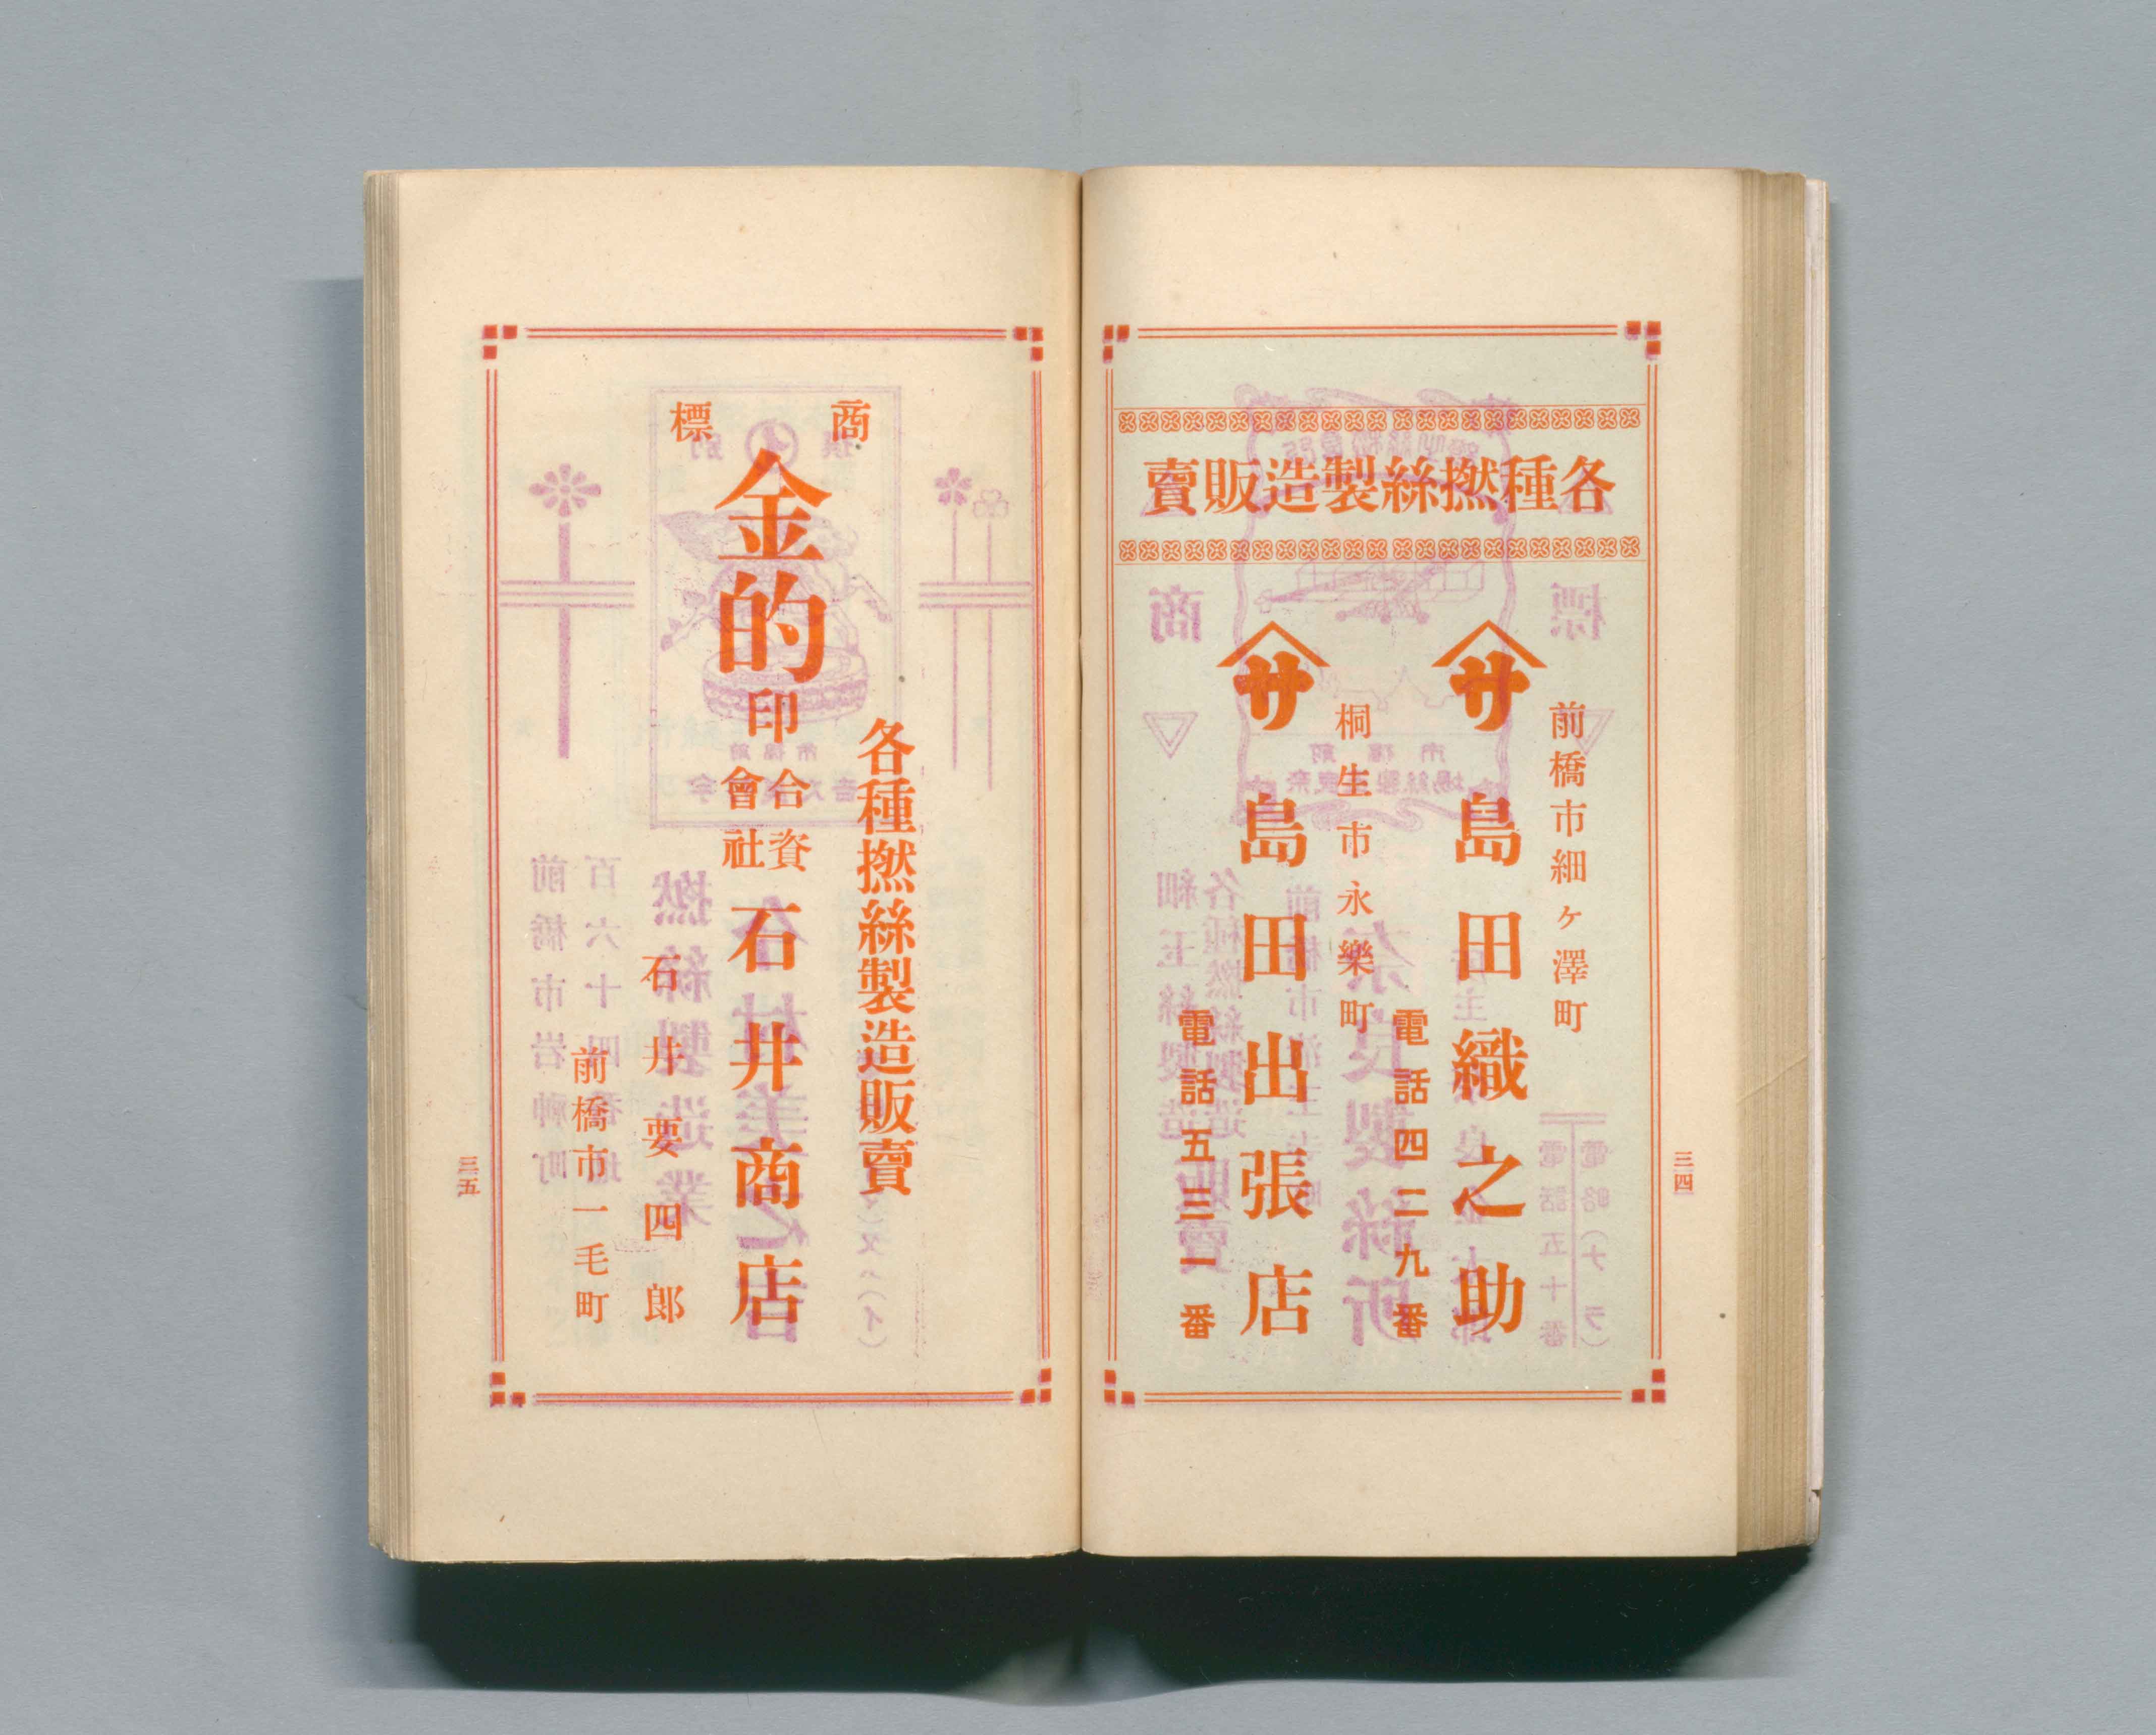 各種撚絲製造販賣
前橋市細ヶ澤町
サ
島田織之助
電話四二九番
桐生市永樂町
サ
島田出張店
電話五三一番
三四
商標
各種撚絲製造販賣
金的印
合資會社
石井商店
石井要四郎
前橋市一毛町
三五